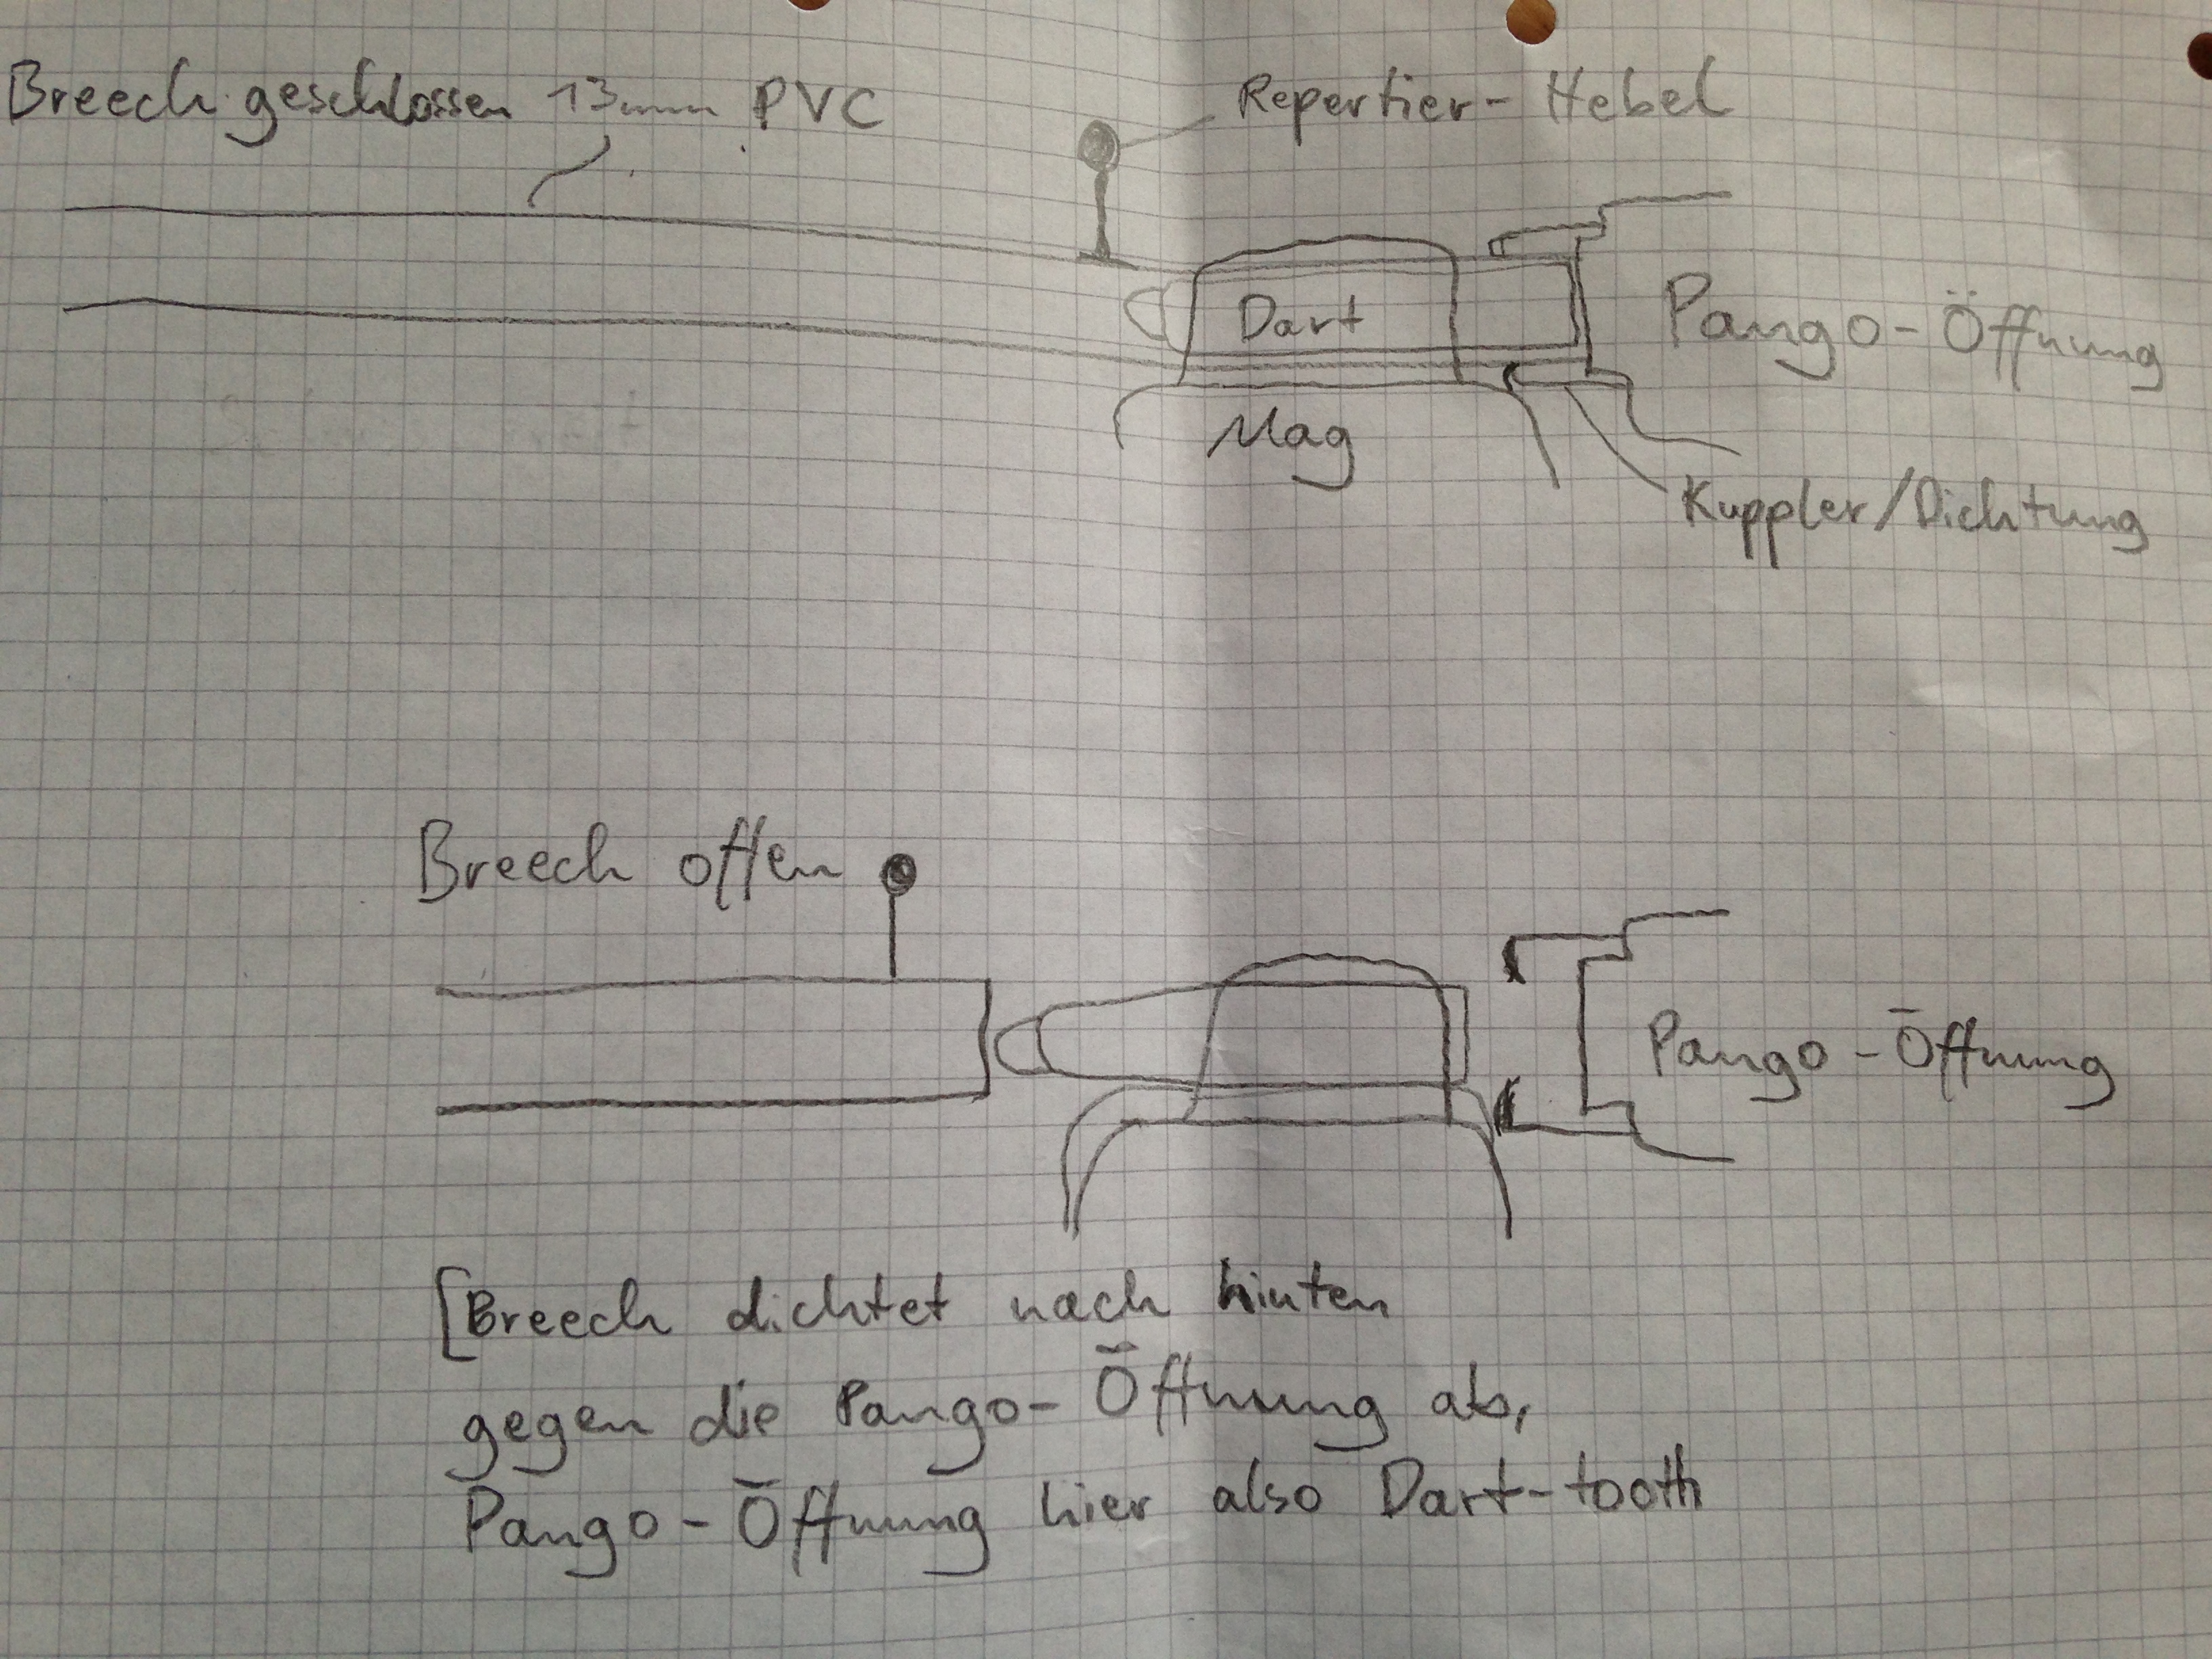 Breech geschlossen 13mm PVC
Repertier-Hebel
Dart
Pango-Öffnung
Mag
Kuppler/Dichtung
Breech offen
Pango-Öffnung
[Breech dichtet nach hinten
gegen die Pango-Öffnung ab,
Pango-Öffnung hier also Dart-tooth